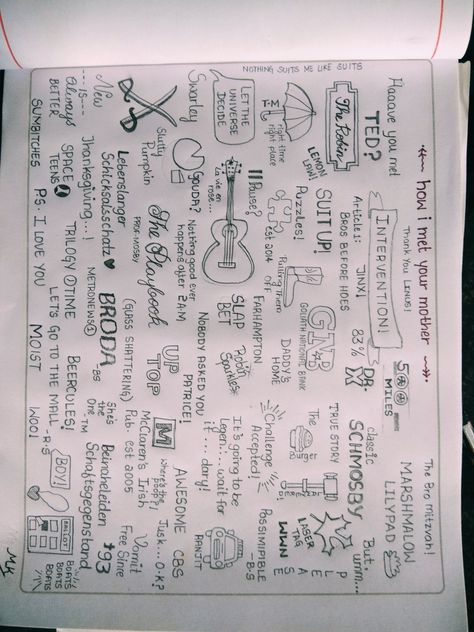 NOTHING SUITS ME LIKE SUITS
how i met your mother
Haaave you met
TED?
The Robin
T.M
right time
right place
LEMON
LAW!
LET THE
UNIVERSE
DECIDE
Swarley
New
is
Always
BETTER
Thank you LINUS!
INTERVENTION!
JINX!
Article 1:
BROS BEFORE HOES
SUIT UP!
Puzzles!
est 2014
Pause?
"Pulling them
OFF"
GOUDA?
La vie en
rose...
Slutty
Pumpkin
Lebenslanger
Schicksalsschatz
Thanksgiving...!
SPACE
TEENS
SUMBITCHES
500
MILES
83%
DR.
X
GNB
GOLIATH NATIONAL BANK
DADDY'S
HOME
FARHAMPTON
SLAP
BET
Robin
Sparkles
Nothing good ever
happens after 2A.M
PROF. MOSBY
The Playbook
METRONEWS 1
TRILOGY TIME
P.S. I LOVE YOU
The Bro Mitzvah!
MARSHMALLOW
LILYPAD
classic
SCHMOSBY
TRUE STORY
The
Challenge
Accepted!
It's going to be
Legen...wait for
it ... dary!
NOBODY ASKED YOU
PATRICE!
UP
TOP
BRODA
-BS
(GLASS SHATTERING)
BEERCULES!
LET'S GO TO THE MALL
-R.S
MOIST
But,
umm...
P
L
E
A
S
E
LASER
TAG
WWN
POSSIMPIBLE
-B.S
RANJIT
CBS
AWESOME
M
Where's the
poop?
McClaren's Irish
Pub. est 2005
She's
the
One TM
Just...O.K?
Vomit
Free Since
'93
Beinaheleiden
Schaftsgegenstand
BOY!
WOO!
BALLOT
BOATS
BOATS
BOATS